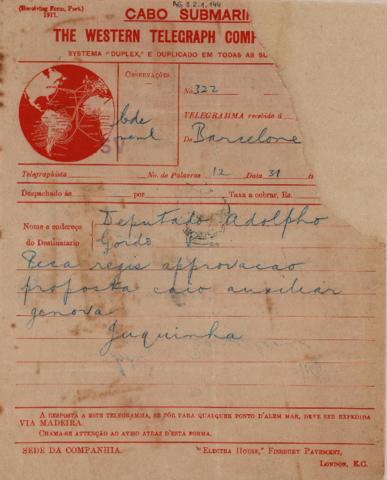 AG 3.2.1.144
(Receiving Form, Pork.)
1911.
CABO SUBMARI
THE WESTERN TELEGRAPH COMP
SYSTEMA "DUPLEX," E DUPLICADO EM TODAS AS SU
OBSERVAÇÕES
No. 322
TELEGRAMMA recebido á
De Barcelone
Telegraphista No. de Palavras 12 Data 31 ás
Despachado ás por Taxa a cobrar, Rs.
Nome e endereço
do Destinatario
Deputado Adolpho
Gordo Rio
Peca regis approvacao
proposta caio auxiliar
genova
Juquinha
A RESPOSTA A ESTE TELEGRAMMA, SE FÔR PARA QUALQUER PONTO D'ALEM MAR, DEVE SER EXPEDIDA
VIA MADEIRA.
CHAMA-SE ATTENÇÃO AO AVISO ATRAZ D'ESTA FORMA.
SEDE DA COMPANHIA. "ELECTRA HOUSE," FINSBURY PAVEMENT,
LONDON, E.C.